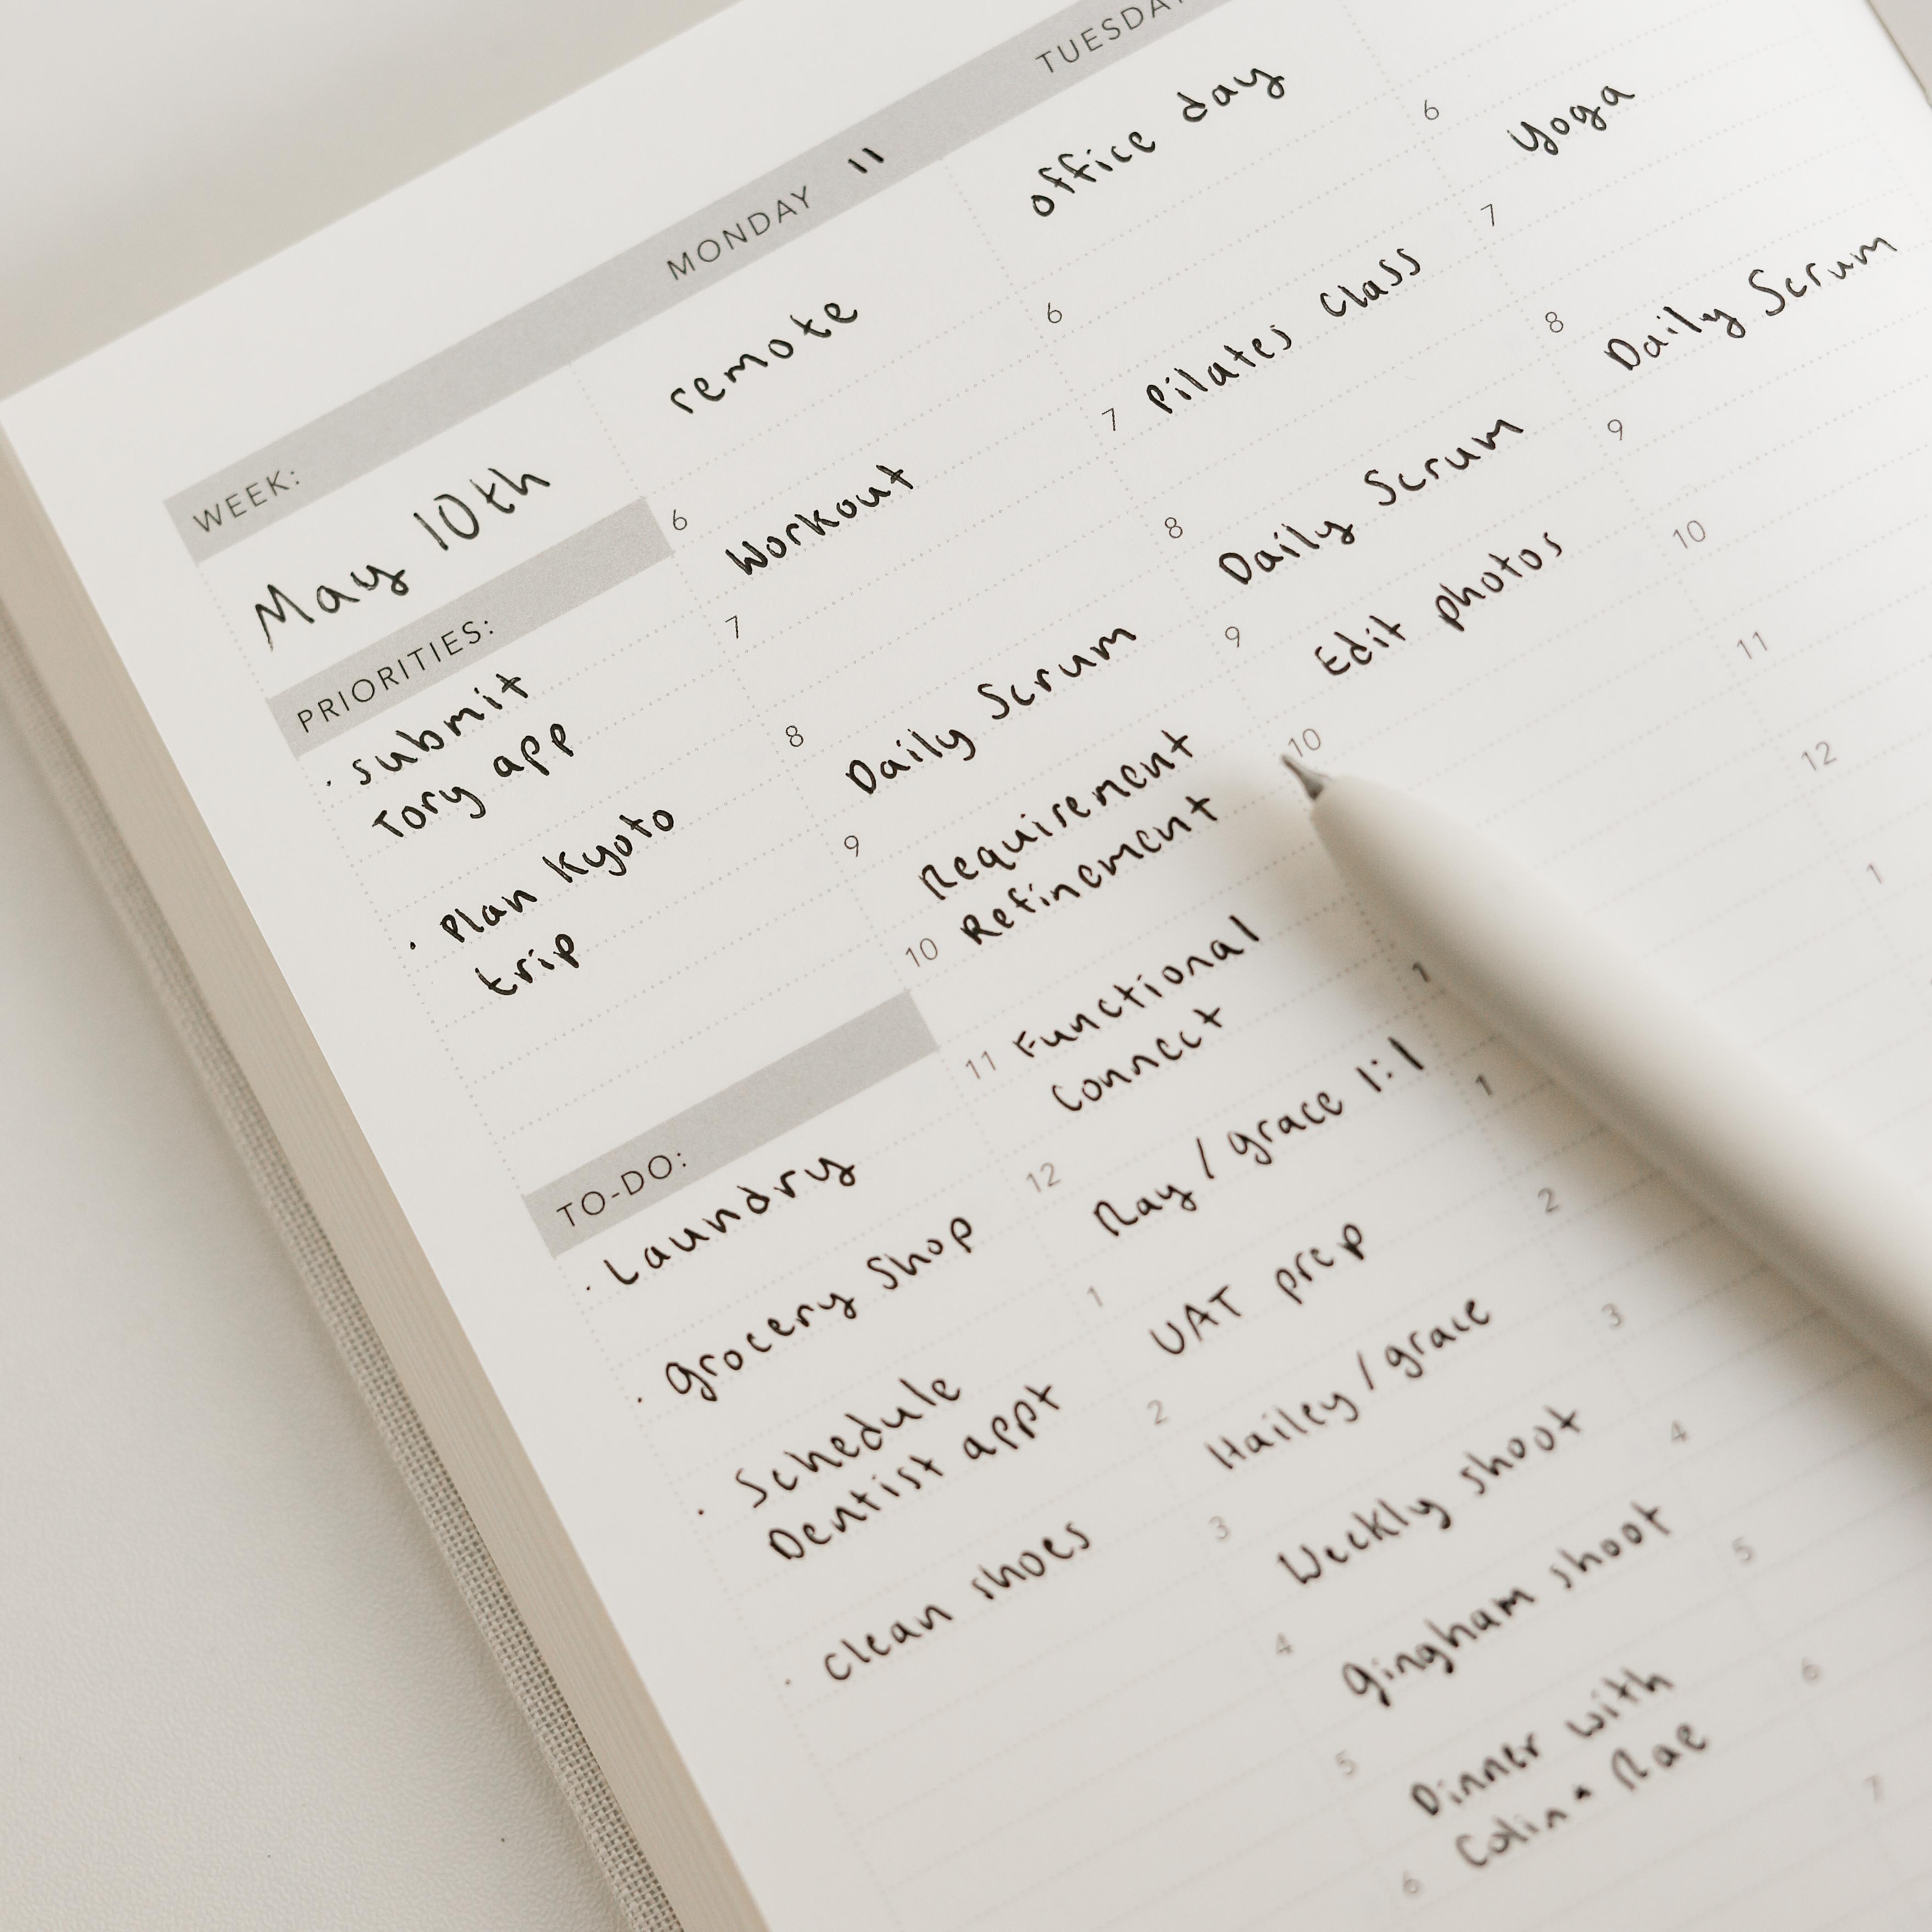 WEEK:
MONDAY 11
TUESDAY
May 10th
PRIORITIES:
· submit
Tory app
· Plan Kyoto
trip
TO-DO:
· Laundry
· grocery shop
· Schedule
Dentist appt
· clean shoes
remote
6 Workout
7
8 Daily Scrum
9 Requirement
10 Refinement
11 Functional
Connect
12 Ray / grace 1:1
1 UAT prep
2 Hailey / grace
3 Weekly shoot
4 gingham shoot
5 Dinner with
Colin + Rae
6
office day
6
7 Pilates Class
8 Daily Scrum
9 Edit photos
10
1
1
2
3
4
5
6
7
6 Yoga
7
8 Daily Scrum
9
10
11
12
1